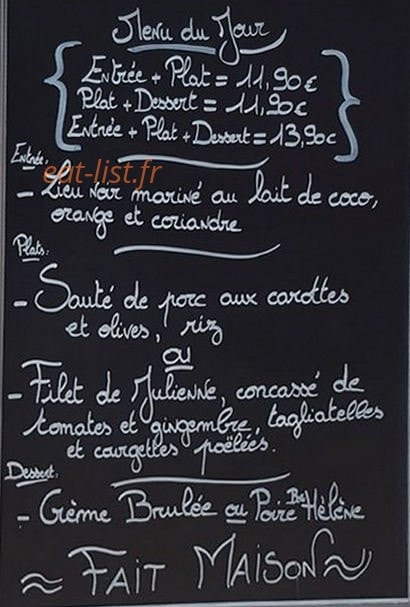 Menu du Jour
Entrée + Plat = 11,90€
Plat + Dessert = 11,90€
Entrée + Plat + Dessert = 13,90€
Entrée:
eat-list.fr
- Lieu noir mariné au lait de coco,
orange et coriandre
Plats:
- Sauté de porc aux carottes
et olives, riz
ou
- Filet de Julienne, concassé de
tomates et gingembre, tagliatelles
et courgettes poëlées.
Dessert:
- Crème Brulée ou Poire Bne Hélène
≈ FAIT MAISON ≈